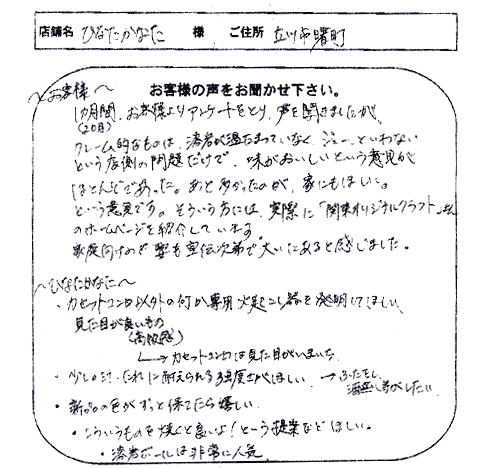 店舗名 ひなたかなた 様 ご住所 立川市曙町
お客様の声をお聞かせ下さい。
〜お客様〜
1カ月間、お客様よりアンケートをとり、声を聞きましたが、
(20日)
クレーム的なものは、溶岩が温たまっていなく、ジューといわない
という店側の問題だけで、味がおいしいという意見が
ほとんどであった。あと多かったのが、家にもほしい。
という意見です。そういう方には、実際に「関東オリジナルクラフト」さん
のホームページを紹介しています。
家庭向けの も宣伝次第で大いにあると感じました。
〜ひなたかなた〜
・カセットコンロ以外の何か専用火起こし器を発明してほしい
見た目が良いもの
(高級感)
→カセットコンロは見た目がいまいち
・少し にたれに耐えられる強度がほしい →ふたをし、
酒蒸し等がしたい
・新品の色がずっと保てたら嬉しい
・こういうものを焼くと良いよ!という提案などほしい。
・溶岩ボールは非常に人気